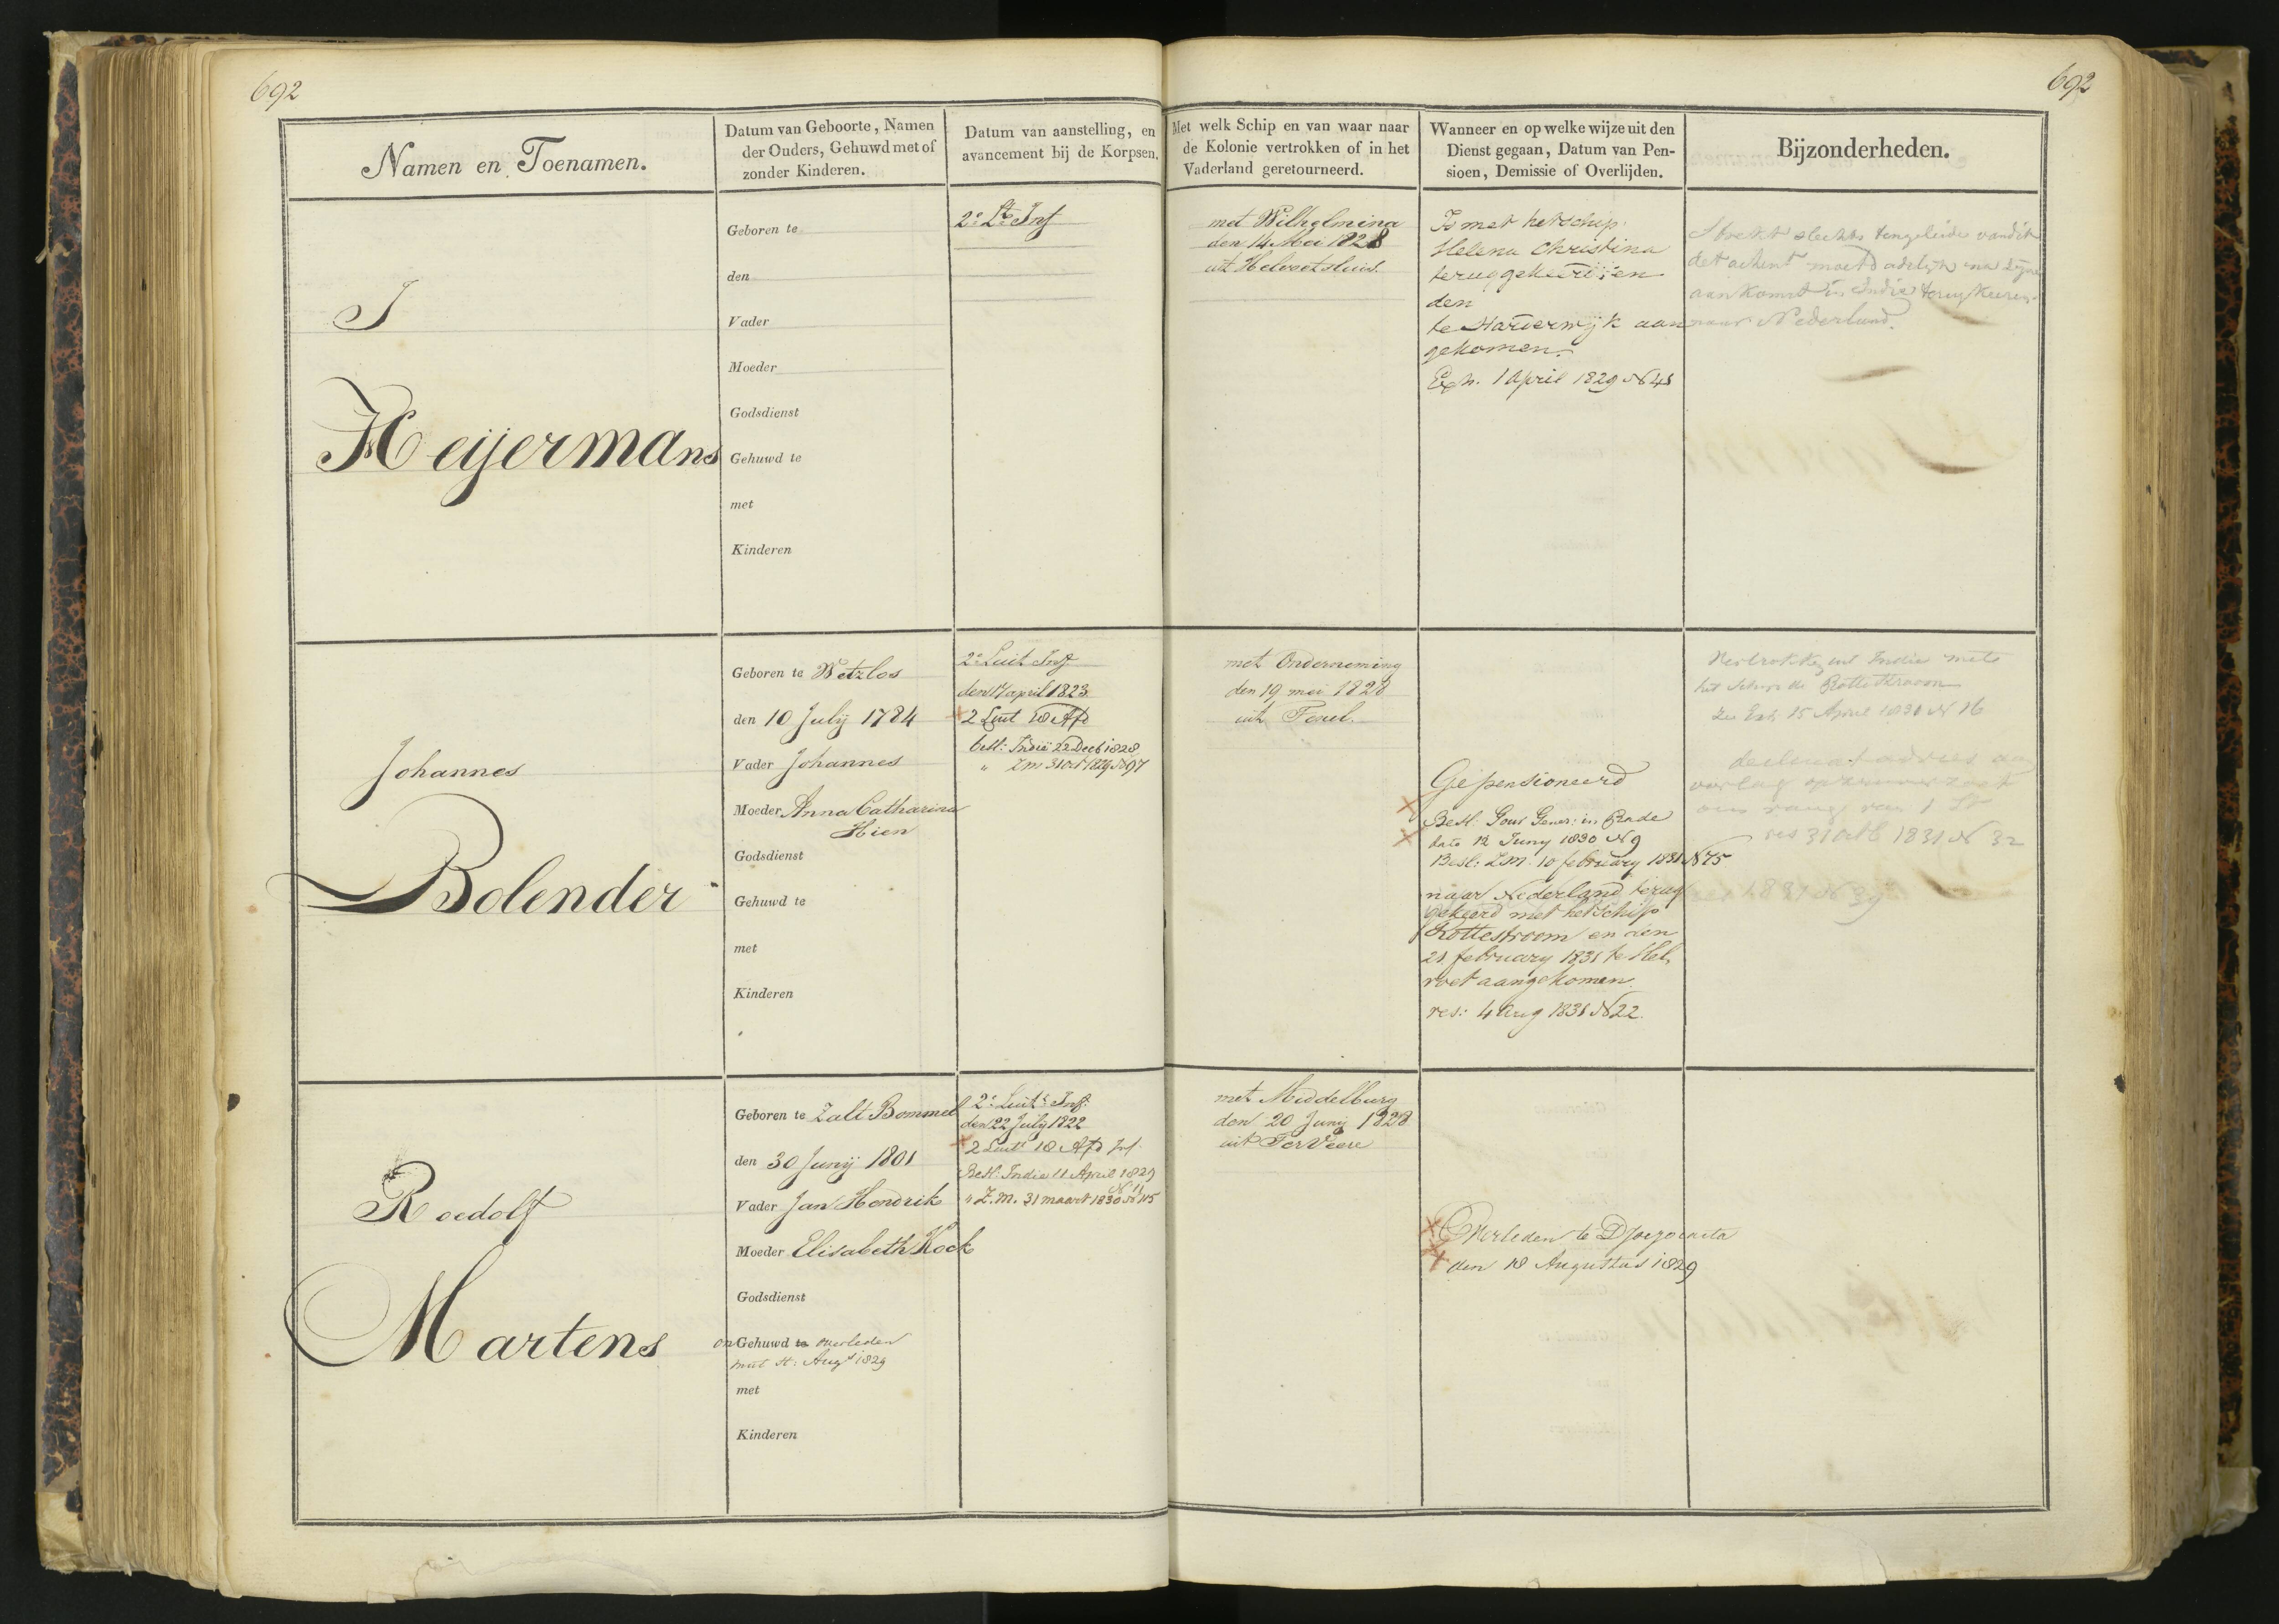 692
692
Namen en Toenamen.
Datum van Geboorte, Namen
der Ouders, Gehuwd met of
zonder Kinderen.
Datum van aanstelling, en
avancement bij de Korpsen.
Met welk Schip en van waar naar
de Kolonie vertrokken of in het
Vaderland geretourneerd.
Wanneer en op welke wijze uit den
Dienst gegaan, Datum van Pen-
sioen, Demissie of Overlijden.
Bijzonderheden.
J
Heijermans
Geboren te
den
Vader
Moeder
Godsdienst
Gehuwd te
met
Kinderen
2e Lt Inf
met Wilhelmina
den 14 Mei 1828
uit Helvoetsluis.
Is met het schip
Helena Christina
teruggekeerd en
den
te Harderwijk aan
gekomen.
Exh. 1 April 1829 N 48
Strekt slechts ten geleide van dit
detachent moet dadelijk na zijne
aankomst in Indie terug keeren
naar Nederland.
Johannes
Bolender
Geboren te Wetzlos
den 10 Julij 1784
Vader Johannes
Moeder Anna Catharina
Hien
Godsdienst
Gehuwd te
met
Kinderen
2e Luit Inf
den 17 april 1823
2 Luit 18 Afd
besl: Indië 22 Decb 1828
" Z M 31 Oct 1829 N 97
met Onderneming
den 19 mei 1828
uit Texel.
Gepensioneerd
Besl. Gouv Gener: in Rade
dato 12 Juny 1830 N 9
Besl: Z.M. 10 february 1831 N 75
naar Nederland terug
gekeerd met het schip
Rottestroom en den
21 february 1831 te Hel
voet aangekomen.
res: 4 Aug 1831 N 22.
Vertrokken uit Indie met
het schip de Rottestroom
Zie Exh 15 April 1831 N 16
rang van 1 Lt
res 31 Octb 1831 N 32
Roedolf
Martens
Geboren te Zalt Bommel
den 30 Junij 1801
Vader Jan Hendrik
Moeder Elisabeth Kock
Godsdienst
onGehuwd te overleden
mut st: Augs 1829
met
Kinderen
2e Luit: Inf:
den 22 July 1822
2 Luit 18 Afd Inf
Besl: Indie 11 April 1829
N 11
" Z.M. 31 maart 1830 N 115
met Middelburg
den 20 Junij 1828
uit Ter Veere
Overleden te Djocjocarta
den 18 Augustus 1829